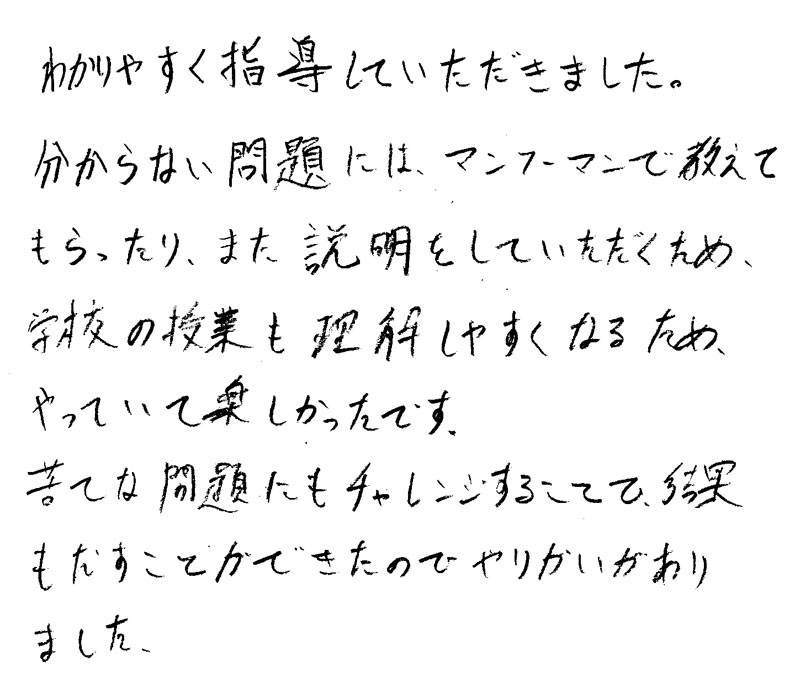 わかりやすく指導していただきました。
分からない問題には、マンツーマンで教えて
もらったり、また説明をしていただくため、
学校の授業も理解しやすくなるため、
やっていて楽しかったです。
苦てな問題にもチャレンジすることで、結果
もだすことができたのでやりがいがあり
ました。